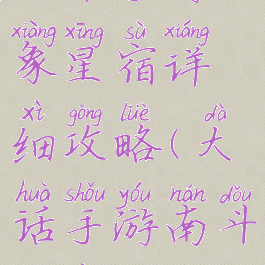 xiàng xīng sù xiáng
象星宿详
xì gōng lüè dà
细攻略(大
huà shǒu yóu nán dǒu
话手游南斗